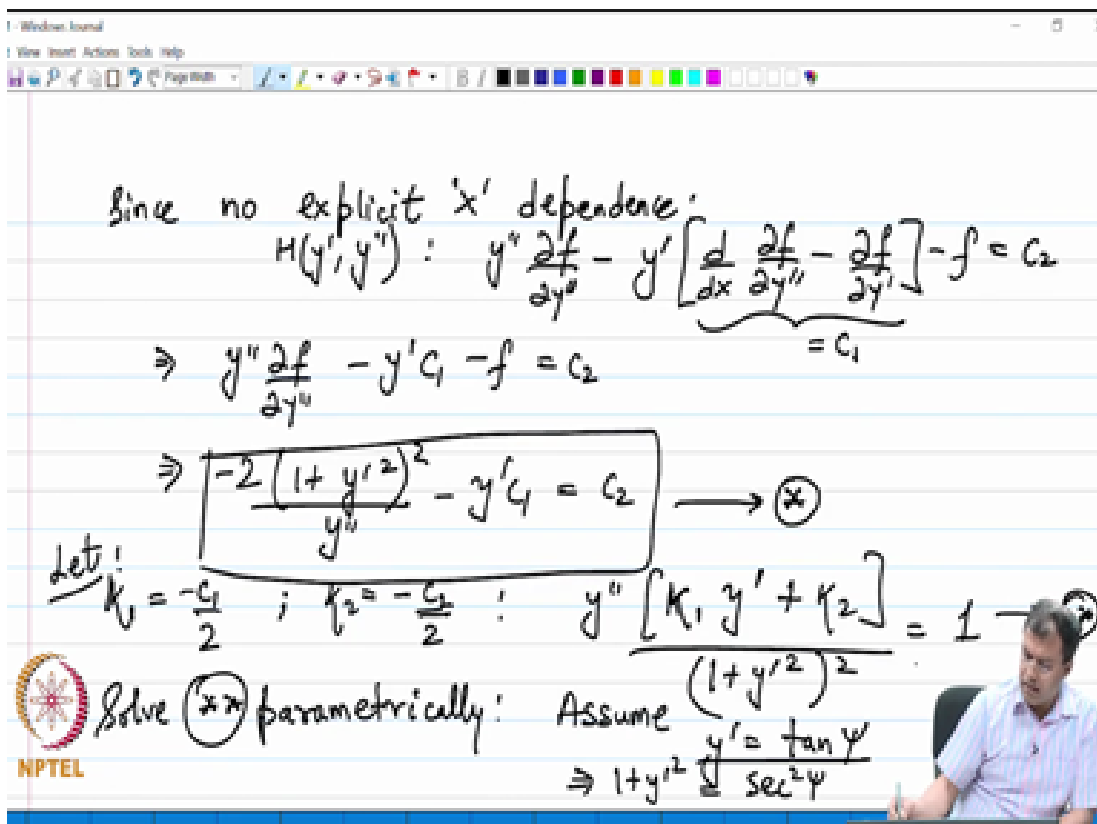 - Windows Journal
View Insert Actions Tools Help
Page Width
B I
Since no explicit 'x' dependence:
H(y', y'') : y'' ∂f/∂y'' - y' [d/dx ∂f/∂y'' - ∂f/∂y'] - f = C₂
= C₁
⇒ y'' ∂f/∂y'' - y'C₁ - f = C₂
⇒ -2(1+y'²)²/y'' - y'C₁ = C₂ → (*)
Let: K₁ = -C₁/2 ; K₂ = -C₂/2 : y''[K₁y' + K₂]/(1+y'²)² = 1
Solve (**) parametrically: Assume y' = tan ψ
⇒ 1+y'² = sec²ψ
NPTEL